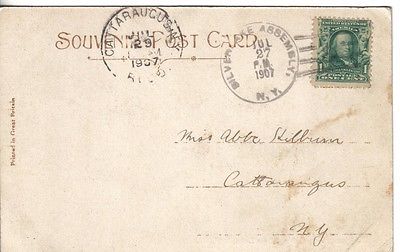 SOUVENIR POST CARD.
CATTARAUGUS, N.Y.
JUL
29
1907
SILVER LAKE ASSEMBLY,
JUL
27
P.M.
1907
N.Y.
Printed in Great Britain
Miss Abbe
Cattaraugus
NY